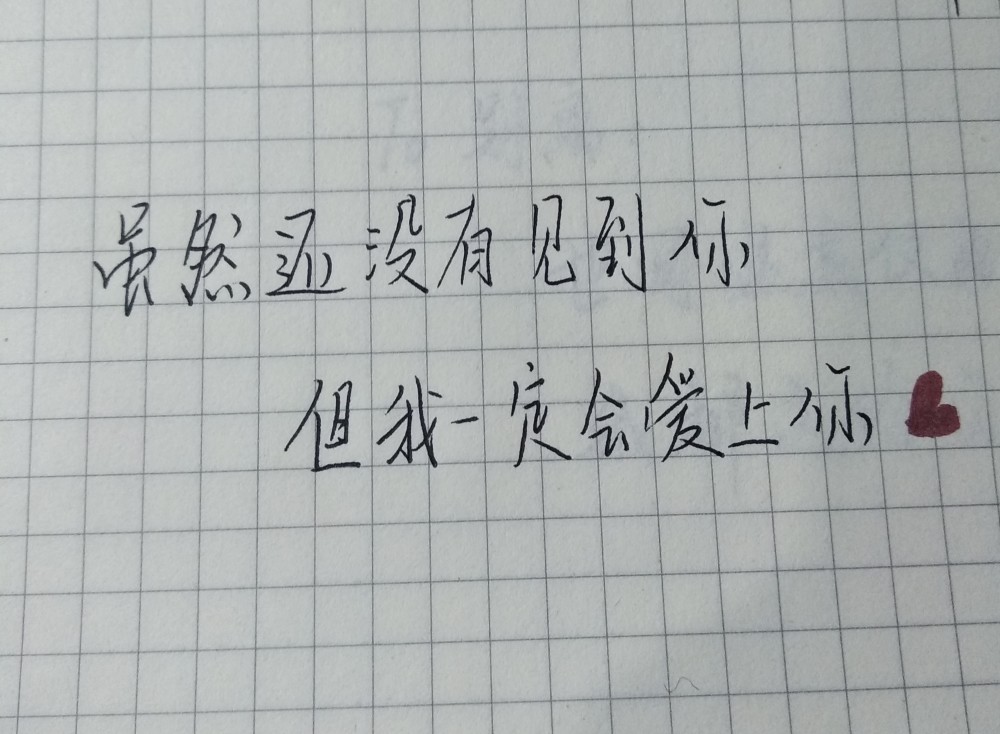 虽然还没有见到你
但我一定会爱上你